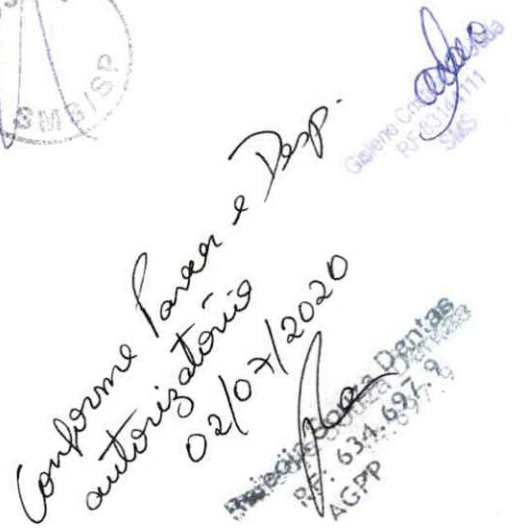 SMS/SP
SMS
Conforme Parecer e Desp.
autorizatório
02/07/2020
Souza Dantas
RF. 631.697.9
AGPP